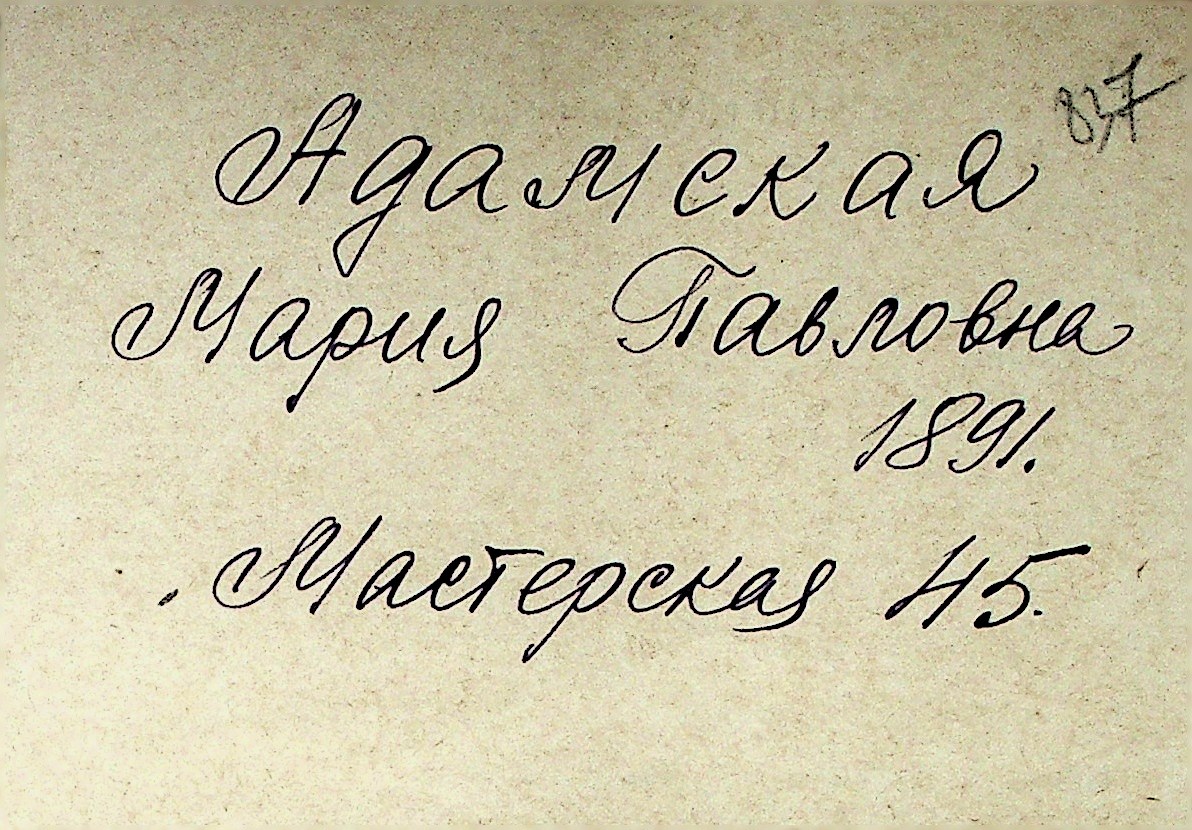 837
Адамская
Мария Павловна
1891.
Мастерская 45.